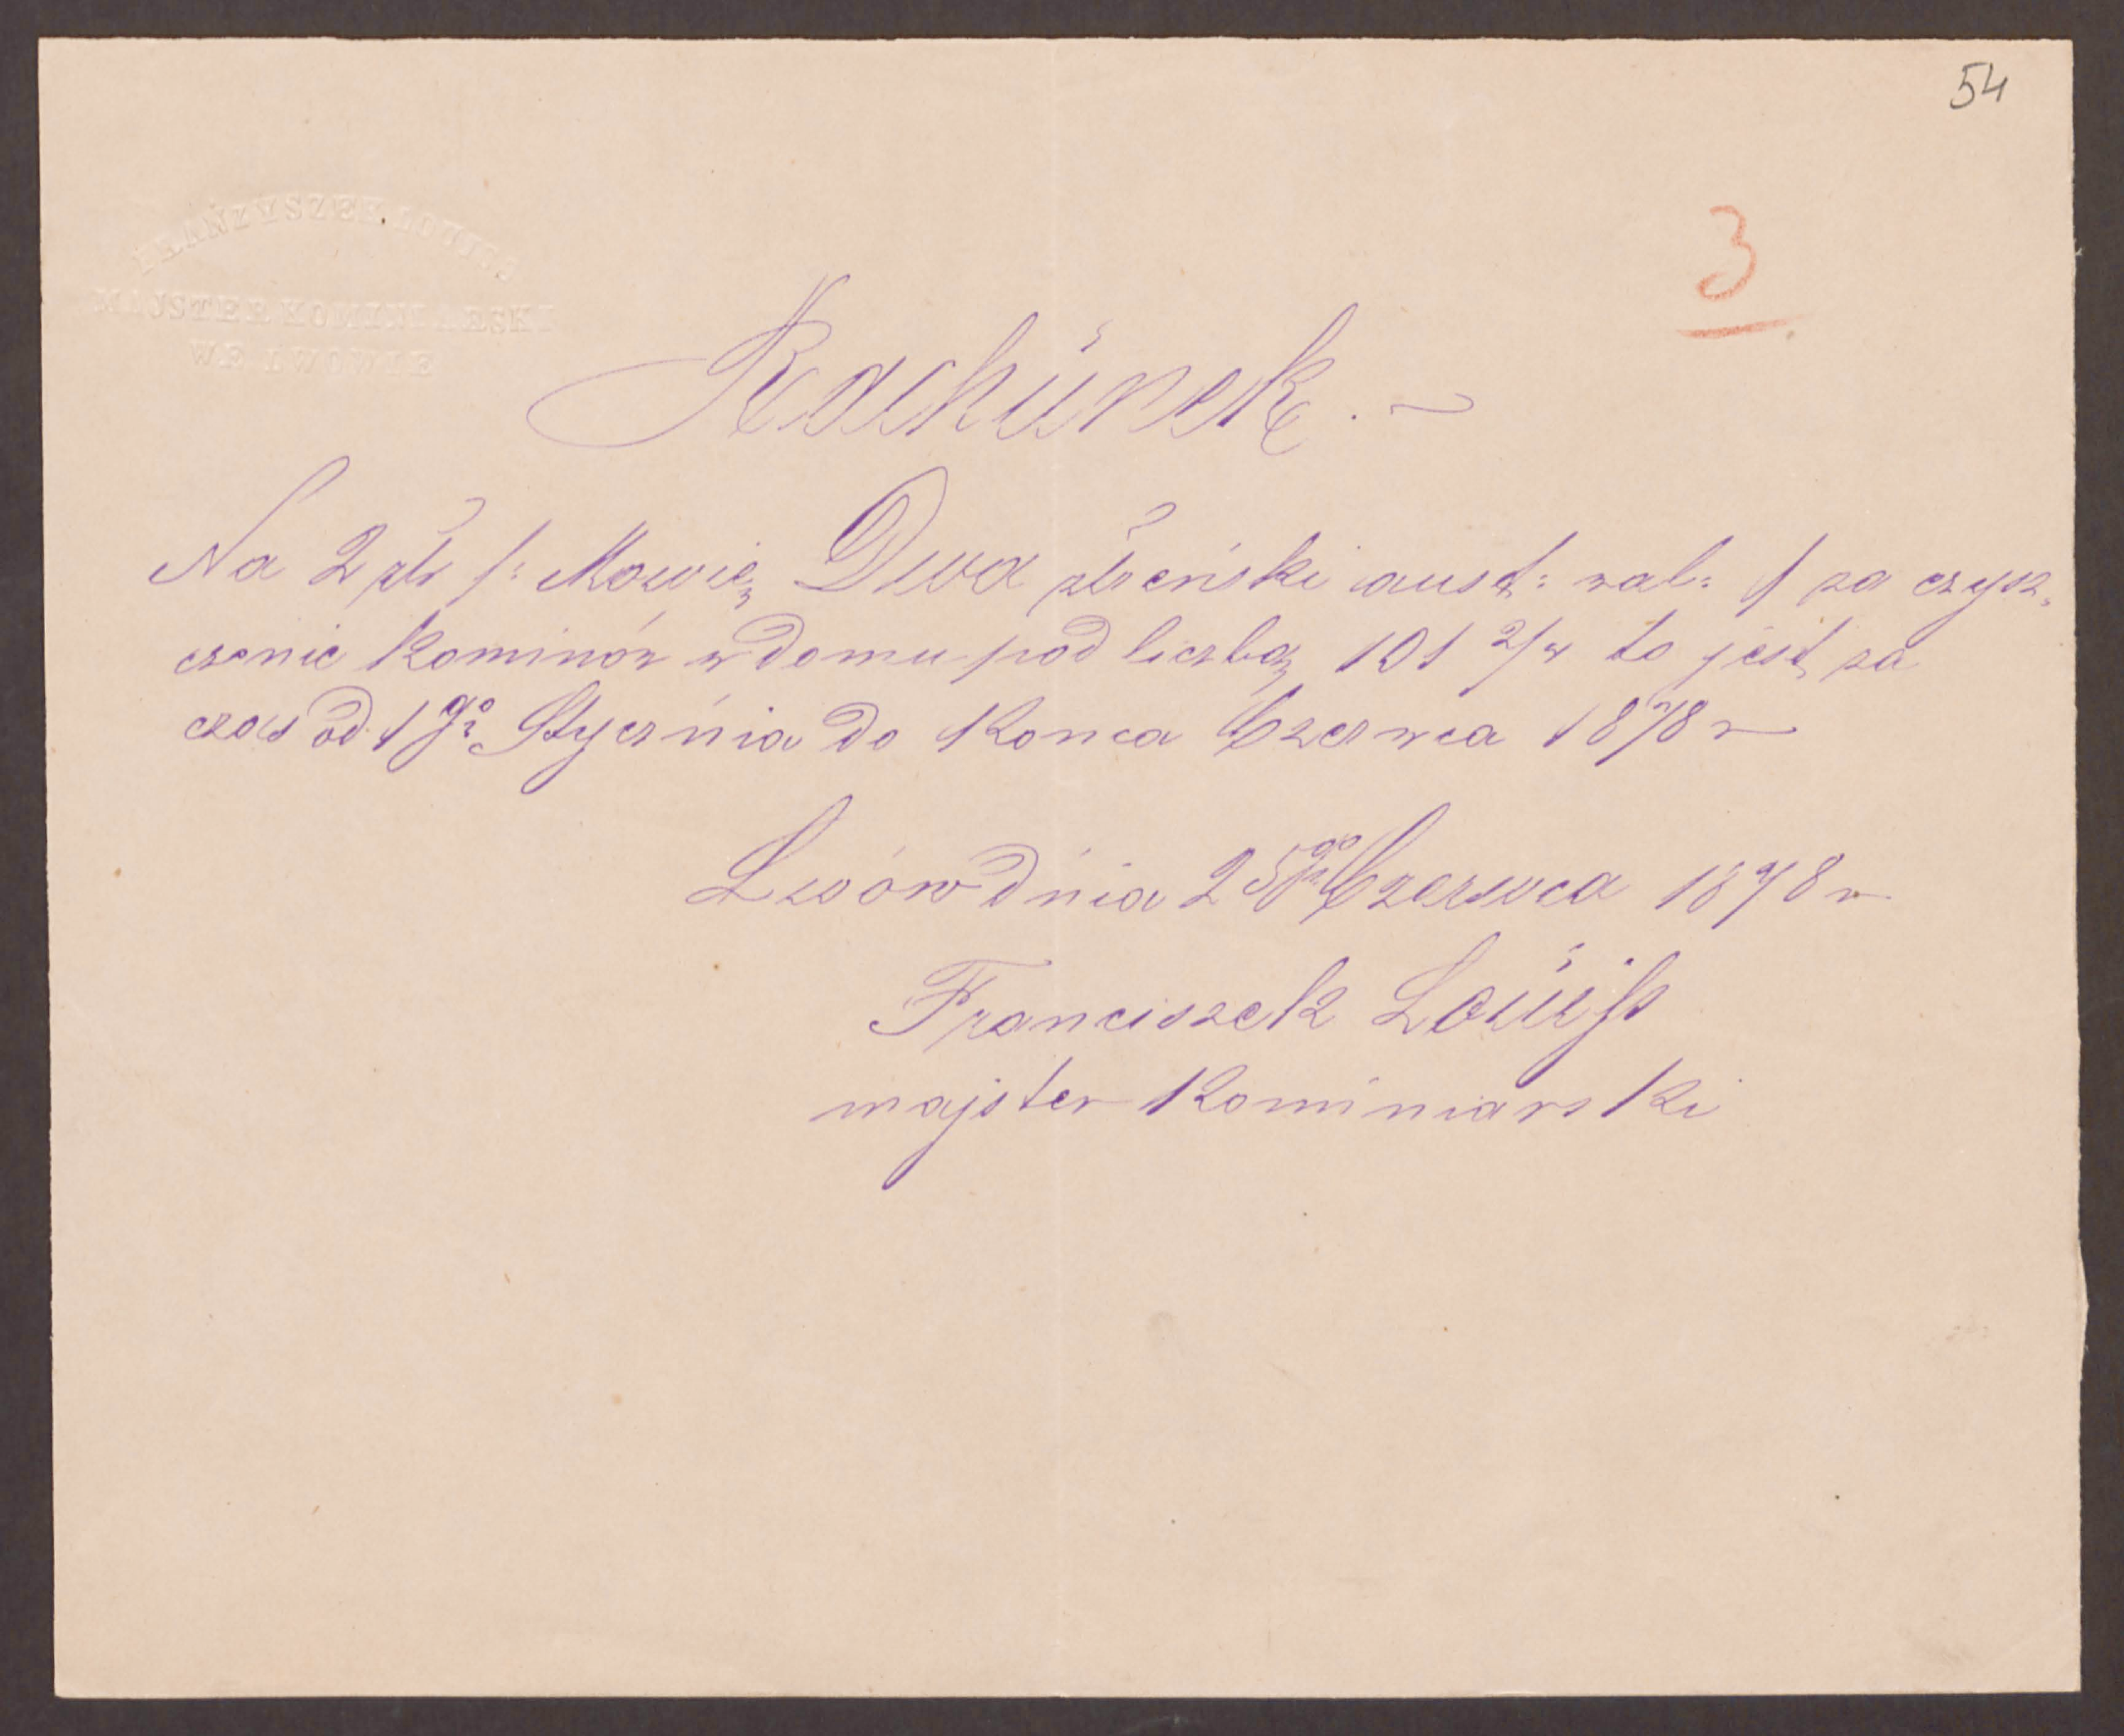 54
FRANZYSZEK LOUJSS
MAJSTER KOMINIARSKI
WE LWOWIE
3
Rachunek . ~
Na 2 złr /: Mowię Dwa złreński aust: wal: / za czysz„
czenie kominów w domu pod liczbą 101 2/4 to jest za
czas od 1go Stycznia do konca Czerwca 1878 r
Lwów dnia 25go Czerwca 1878 r
Franciszek Loüjss
majster kominiarski